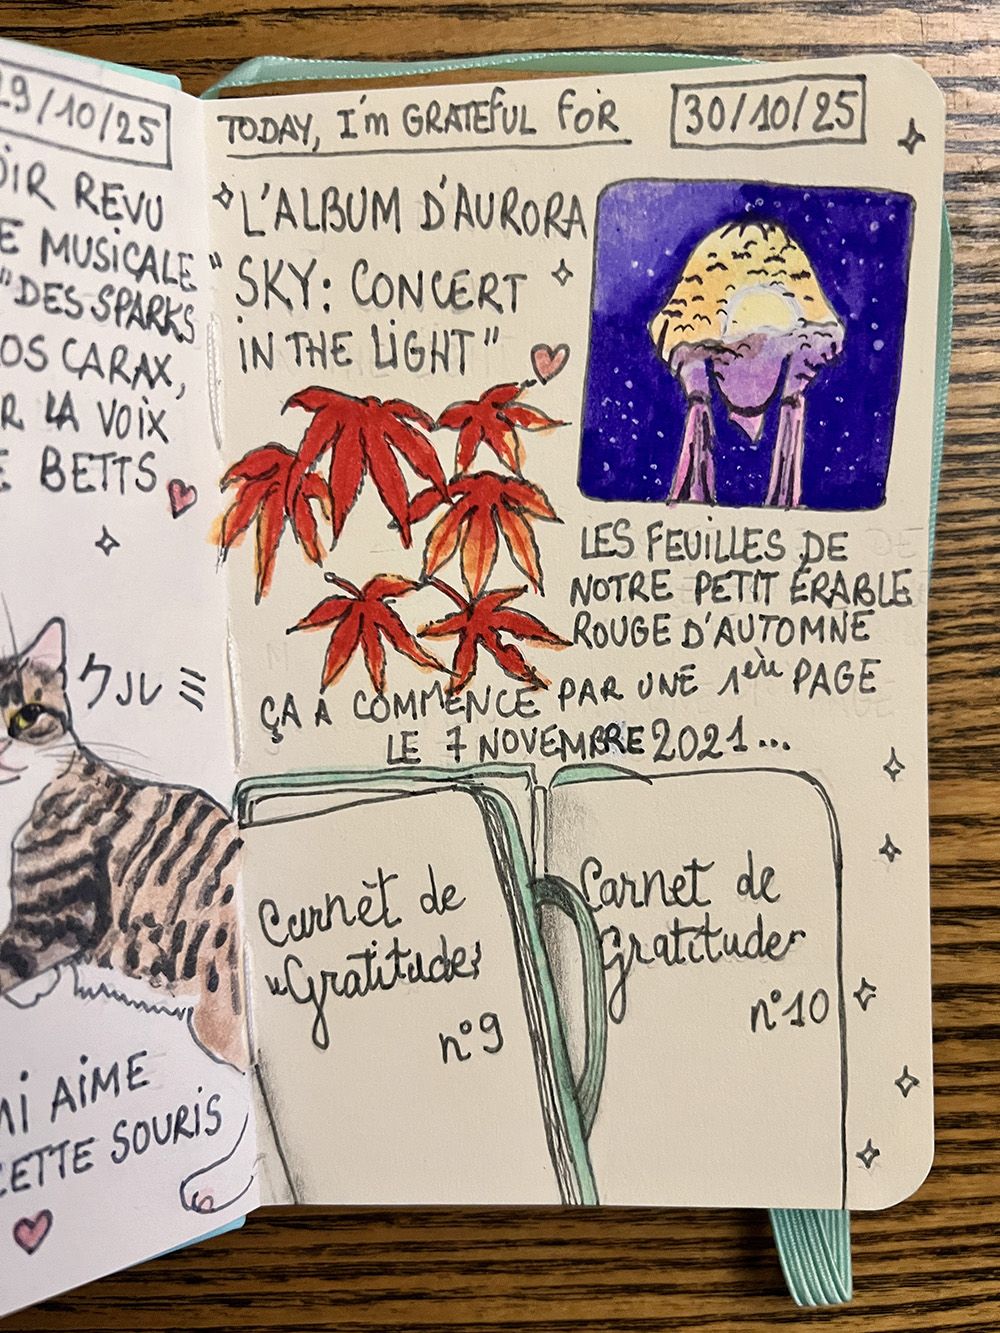 29/10/25
REVU
MUSICALE
"DES SPARKS
CARAX,
LA VOIX
BETTS
クルミ
AIME
CETTE SOURIS
TODAY, I'm GRATEFUL FOR
30/10/25
L'ALBUM D'AURORA
"SKY: CONCERT
IN THE LIGHT"
LES FEUILLES DE
NOTRE PETIT ÉRABLE
ROUGE D'AUTOMNE
ÇA A COMMENCÉ PAR UNE 1ère PAGE
LE 7 NOVEMBRE 2021...
Carnet de
Gratitude
n°9
Carnet de
Gratitude
n°10